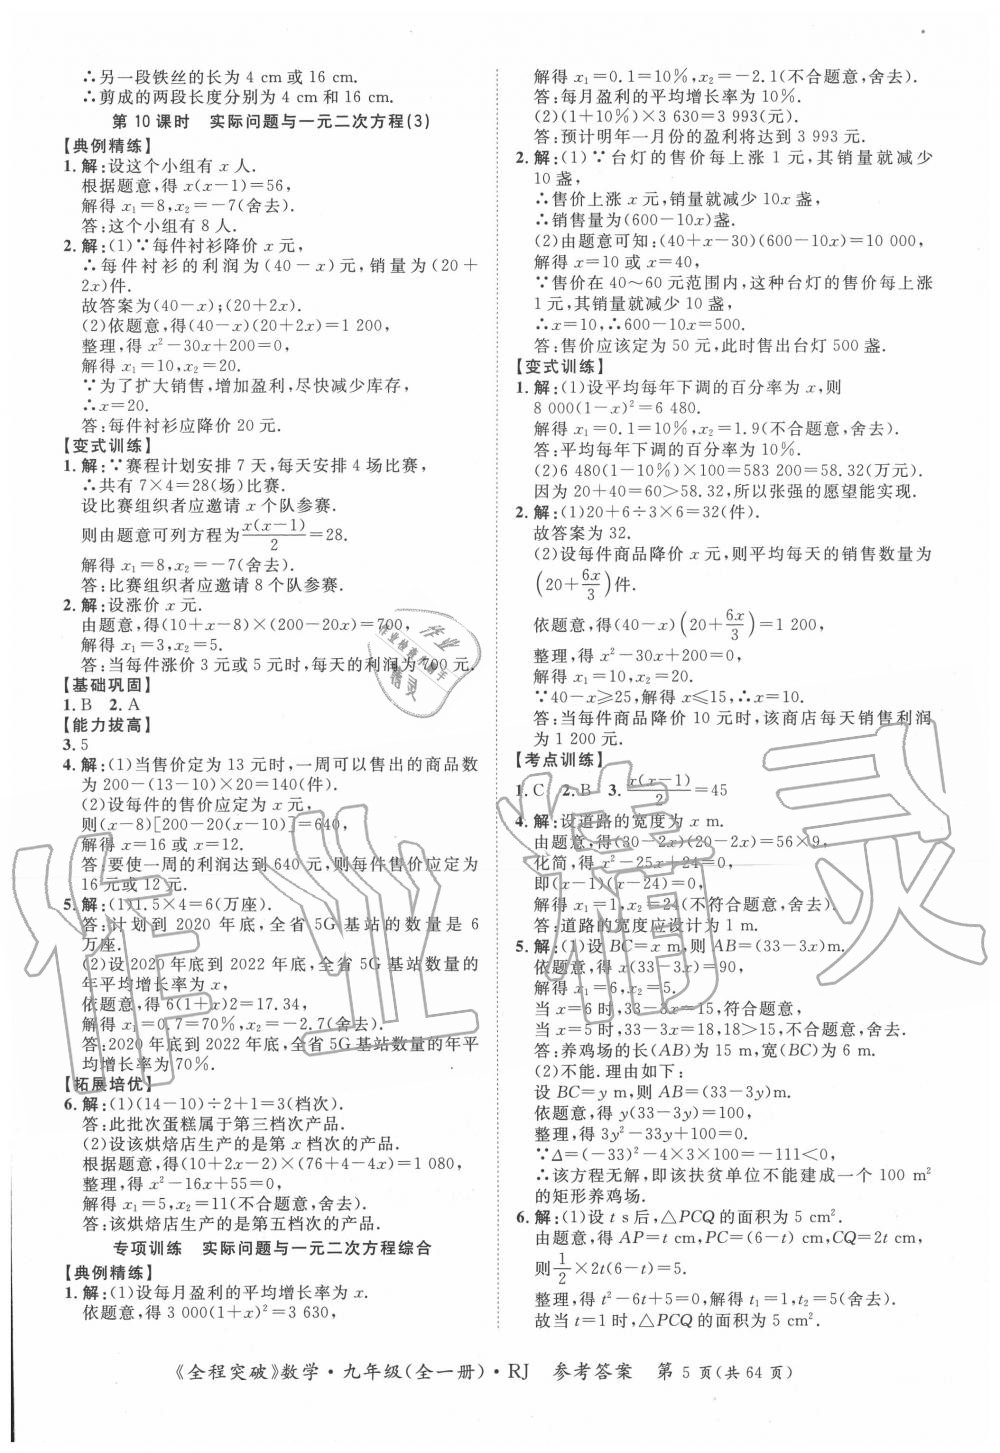 ∴另一段铁丝的长为 4 cm 或 16 cm.
∴剪成的两段长度分别为 4 cm 和 16 cm.
第 10 课时　实际问题与一元二次方程(3)
【典例精练】
1. 解:设这个小组有 x 人.
根据题意,得 x(x−1)=56,
解得 x₁=8,x₂=−7(舍去).
答:这个小组有 8 人.
2. 解:(1)∵每件衬衫降价 x 元,
∴每件衬衫的利润为(40−x)元,销量为(20+
2x)件.
故答案为(40−x);(20+2x).
(2)依题意,得(40−x)(20+2x)=1 200,
整理,得 x²−30x+200=0,
解得 x₁=10,x₂=20.
∵为了扩大销售,增加盈利,尽快减少库存,
∴x=20.
答:每件衬衫应降价 20 元.
【变式训练】
1. 解:∵赛程计划安排 7 天,每天安排 4 场比赛,
∴共有 7×4=28(场)比赛.
设比赛组织者应邀请 x 个队参赛.
则由题意可列方程为x(x−1)/2=28.
解得 x₁=8,x₂=−7(舍去).
答:比赛组织者应邀请 8 个队参赛.
2. 解:设涨价 x 元.
由题意,得(10+x−8)×(200−20x)=700,
解得 x₁=3,x₂=5.
答:当每件涨价 3 元或 5 元时,每天的利润为 700 元.
【基础巩固】
1. B　2. A
【能力拔高】
3. 5
4. 解:(1)当售价定为 13 元时,一周可以售出的商品数
为 200−(13−10)×20=140(件).
(2)设每件的售价应定为 x 元,
则(x−8)[200−20(x−10)]=640,
解得 x=16 或 x=12.
答:要使一周的利润达到 640 元,则每件售价应定为
16 元或 12 元.
5. 解:(1)1.5×4=6(万座).
答:计划到 2020 年底,全省 5G 基站的数量是 6
万座.
(2)设 2020 年底到 2022 年底,全省 5G 基站数量的
年平均增长率为 x,
依题意,得 6(1+x)2=17.34,
解得 x₁=0.7=70%,x₂=−2.7(舍去).
答:2020 年底到 2022 年底,全省 5G 基站数量的年平
均增长率为 70%.
【拓展培优】
6. 解:(1)(14−10)÷2+1=3(档次).
答:此批次蛋糕属于第三档次产品.
(2)设该烘焙店生产的是第 x 档次的产品.
根据题意,得(10+2x−2)×(76+4−4x)=1 080,
整理,得 x²−16x+55=0,
解得 x₁=5,x₂=11(不合题意,舍去).
答:该烘焙店生产的是第五档次的产品.
专项训练　实际问题与一元二次方程综合
【典例精练】
1. 解:(1)设每月盈利的平均增长率为 x.
依题意,得 3 000(1+x)²=3 630,
解得 x₁=0.1=10%,x₂=−2.1(不合题意,舍去).
答:每月盈利的平均增长率为 10%.
(2)(1+10%)×3 630=3 993(元).
答:预计明年一月份的盈利将达到 3 993 元.
2. 解:(1)∵台灯的售价每上涨 1 元,其销量就减少
10 盏,
∴售价上涨 x 元,销量就减少 10x 盏,
∴销售量为(600−10x)盏.
(2)由题意可知:(40+x−30)(600−10x)=10 000,
解得 x=10 或 x=40,
∵售价在 40~60 元范围内,这种台灯的售价每上涨
1 元,其销量就减少 10 盏,
∴x=10,∴600−10x=500.
答:售价应该定为 50 元,此时售出台灯 500 盏.
【变式训练】
1. 解:(1)设平均每年下调的百分率为 x,则
8 000(1−x)²=6 480.
解得 x₁=0.1=10%,x₂=1.9(不合题意,舍去).
答:平均每年下调的百分率为 10%.
(2)6 480(1−10%)×100=583 200=58.32(万元).
因为 20+40=60>58.32,所以张强的愿望能实现.
2. 解:(1)20+6÷3×6=32(件).
故答案为 32.
(2)设每件商品降价 x 元,则平均每天的销售数量为
(20+6x/3)件.
依题意,得(40−x)(20+6x/3)=1 200,
整理,得 x²−30x+200=0,
解得 x₁=10,x₂=20.
∵40−x≥25,解得 x≤15,∴x=10.
答:当每件商品降价 10 元时,该商店每天销售利润
为 1 200 元.
【考点训练】
1. C　2. B　3. x(x−1)/2=45
4. 解:设道路的宽度为 x m.
由题意,得(30−2x)(20−2x)=56×9,
化简,得 x²−25x+24=0,
即(x−1)(x−24)=0,
解得 x₁=1,x₂=24(不符合题意,舍去).
答:道路的宽度应设计为 1 m.
5. 解:(1)设 BC=x m,则 AB=(33−3x)m.
依题意,得 x(33−3x)=90,
解得 x₁=6,x₂=5.
当 x=6 时,33−3x=15,符合题意,
当 x=5 时,33−3x=18,18>15,不合题意,舍去.
答:养鸡场的长(AB)为 15 m,宽(BC)为 6 m.
(2)不能.理由如下:
设 BC=y m,则 AB=(33−3y)m,
依题意,得 y(33−3y)=100,
整理,得 3y²−33y+100=0,
∵Δ=(−33)²−4×3×100=−111<0,
∴该方程无解,即该扶贫单位不能建成一个 100 m²
的矩形养鸡场.
6. 解:(1)设 t s 后,△PCQ 的面积为 5 cm².
由题意,得 AP=t cm,PC=(6−t)cm,CQ=2t cm,
则1/2×2t(6−t)=5.
整理,得 t²−6t+5=0,解得 t₁=1,t₂=5(舍去).
故当 t=1 时,△PCQ 的面积为 5 cm².
《全程突破》数学·九年级(全一册)·RJ　参考答案　第 5 页(共 64 页)
作业精灵
作业
作业检查小助手
精灵